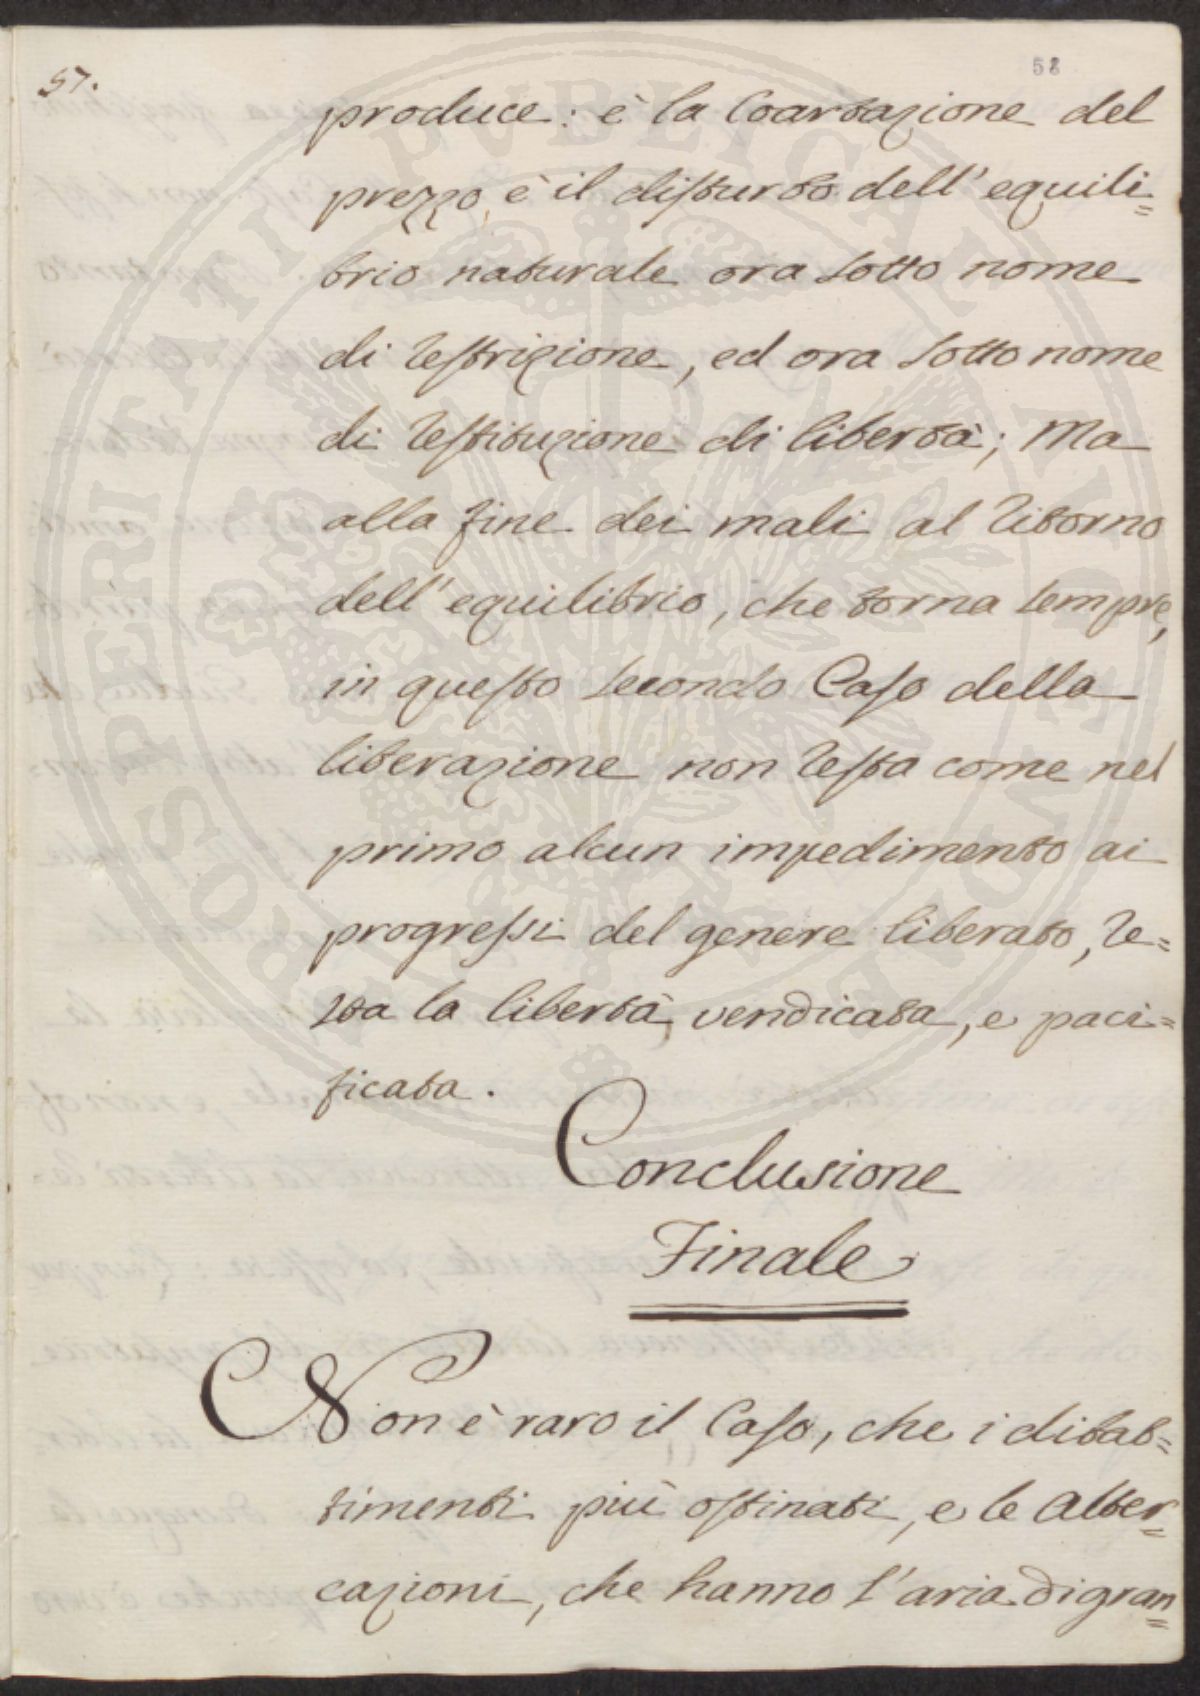 57.
58
produce: è la Coartazione del
prezzo, è il disturbo dell' equili=
brio naturale ora sotto nome
di restrizione, ed ora sotto nome
di restituzione di libertà; Ma
alla fine dei mali al ritorno
dell' equilibrio, che torna sempre,
in questo secondo Caso della
liberazione non resta come nel
primo alcun impedimento ai
progressi del genere liberato, re=
sta la libertà vendicata, e paci=
ficata.
Conclusione
Finale
Non è raro il Caso, che i dibat=
timenti più ostinati, e le alter=
cazioni, che hanno l'aria di gran=
PROSPERITATI PUBLICAE AUGENDAE